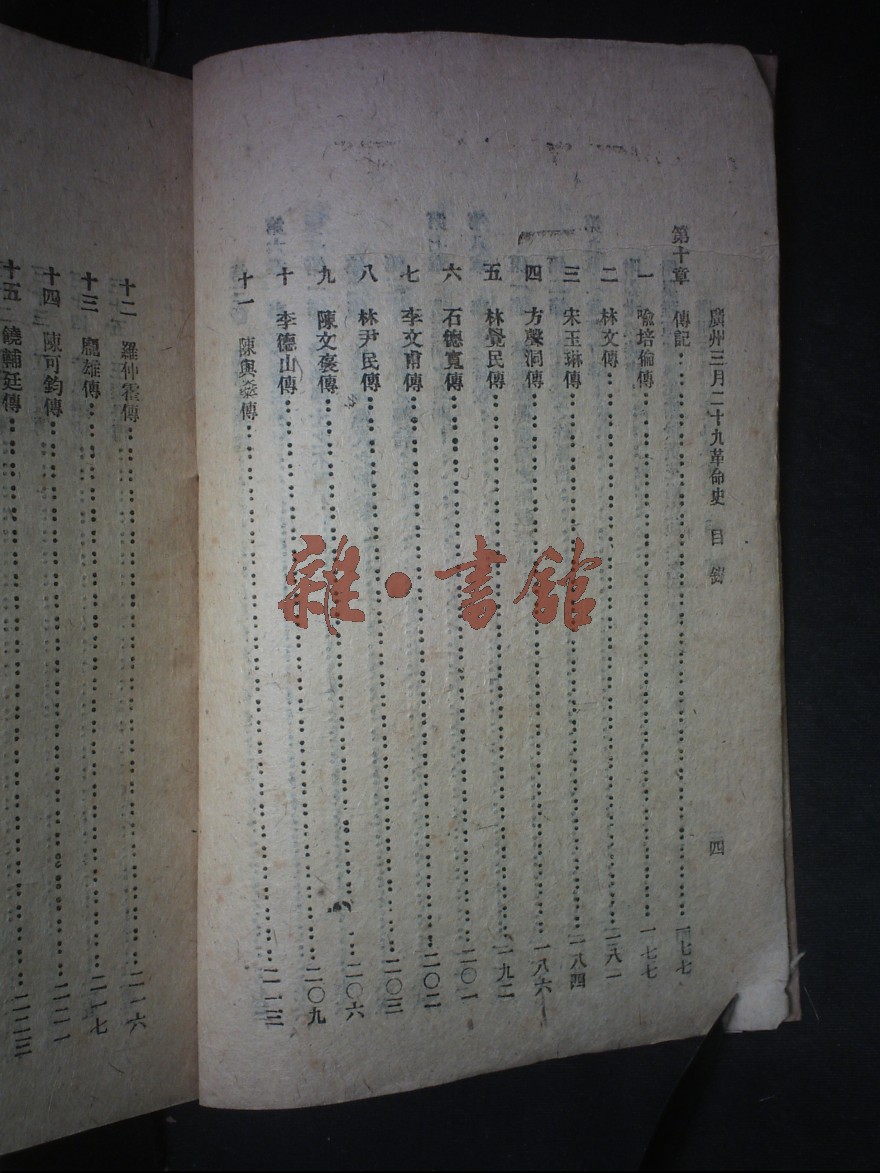 廣州三月二十九革命史 目錄 四
第十章 傳記………一七七
一 喩培倫傳………一七七
二 林文傳………一八一
三 宋玉琳傳………一八四
四 方聲洞傳………一八六
五 林覺民傳………一九二
六 石德寬傳………二〇一
七 李文甫傳………二〇二
八 林尹民傳………二〇三
九 陳文褒傳………二〇六
十 李德山傳………二〇九
十一 陳與燊傳………二一三
十二 羅仲霍傳………二一六
十三 龐雄傳………二一七
十四 陳可鈞傳………二二一
十五 饒輔廷傳………二二三
雜·書館